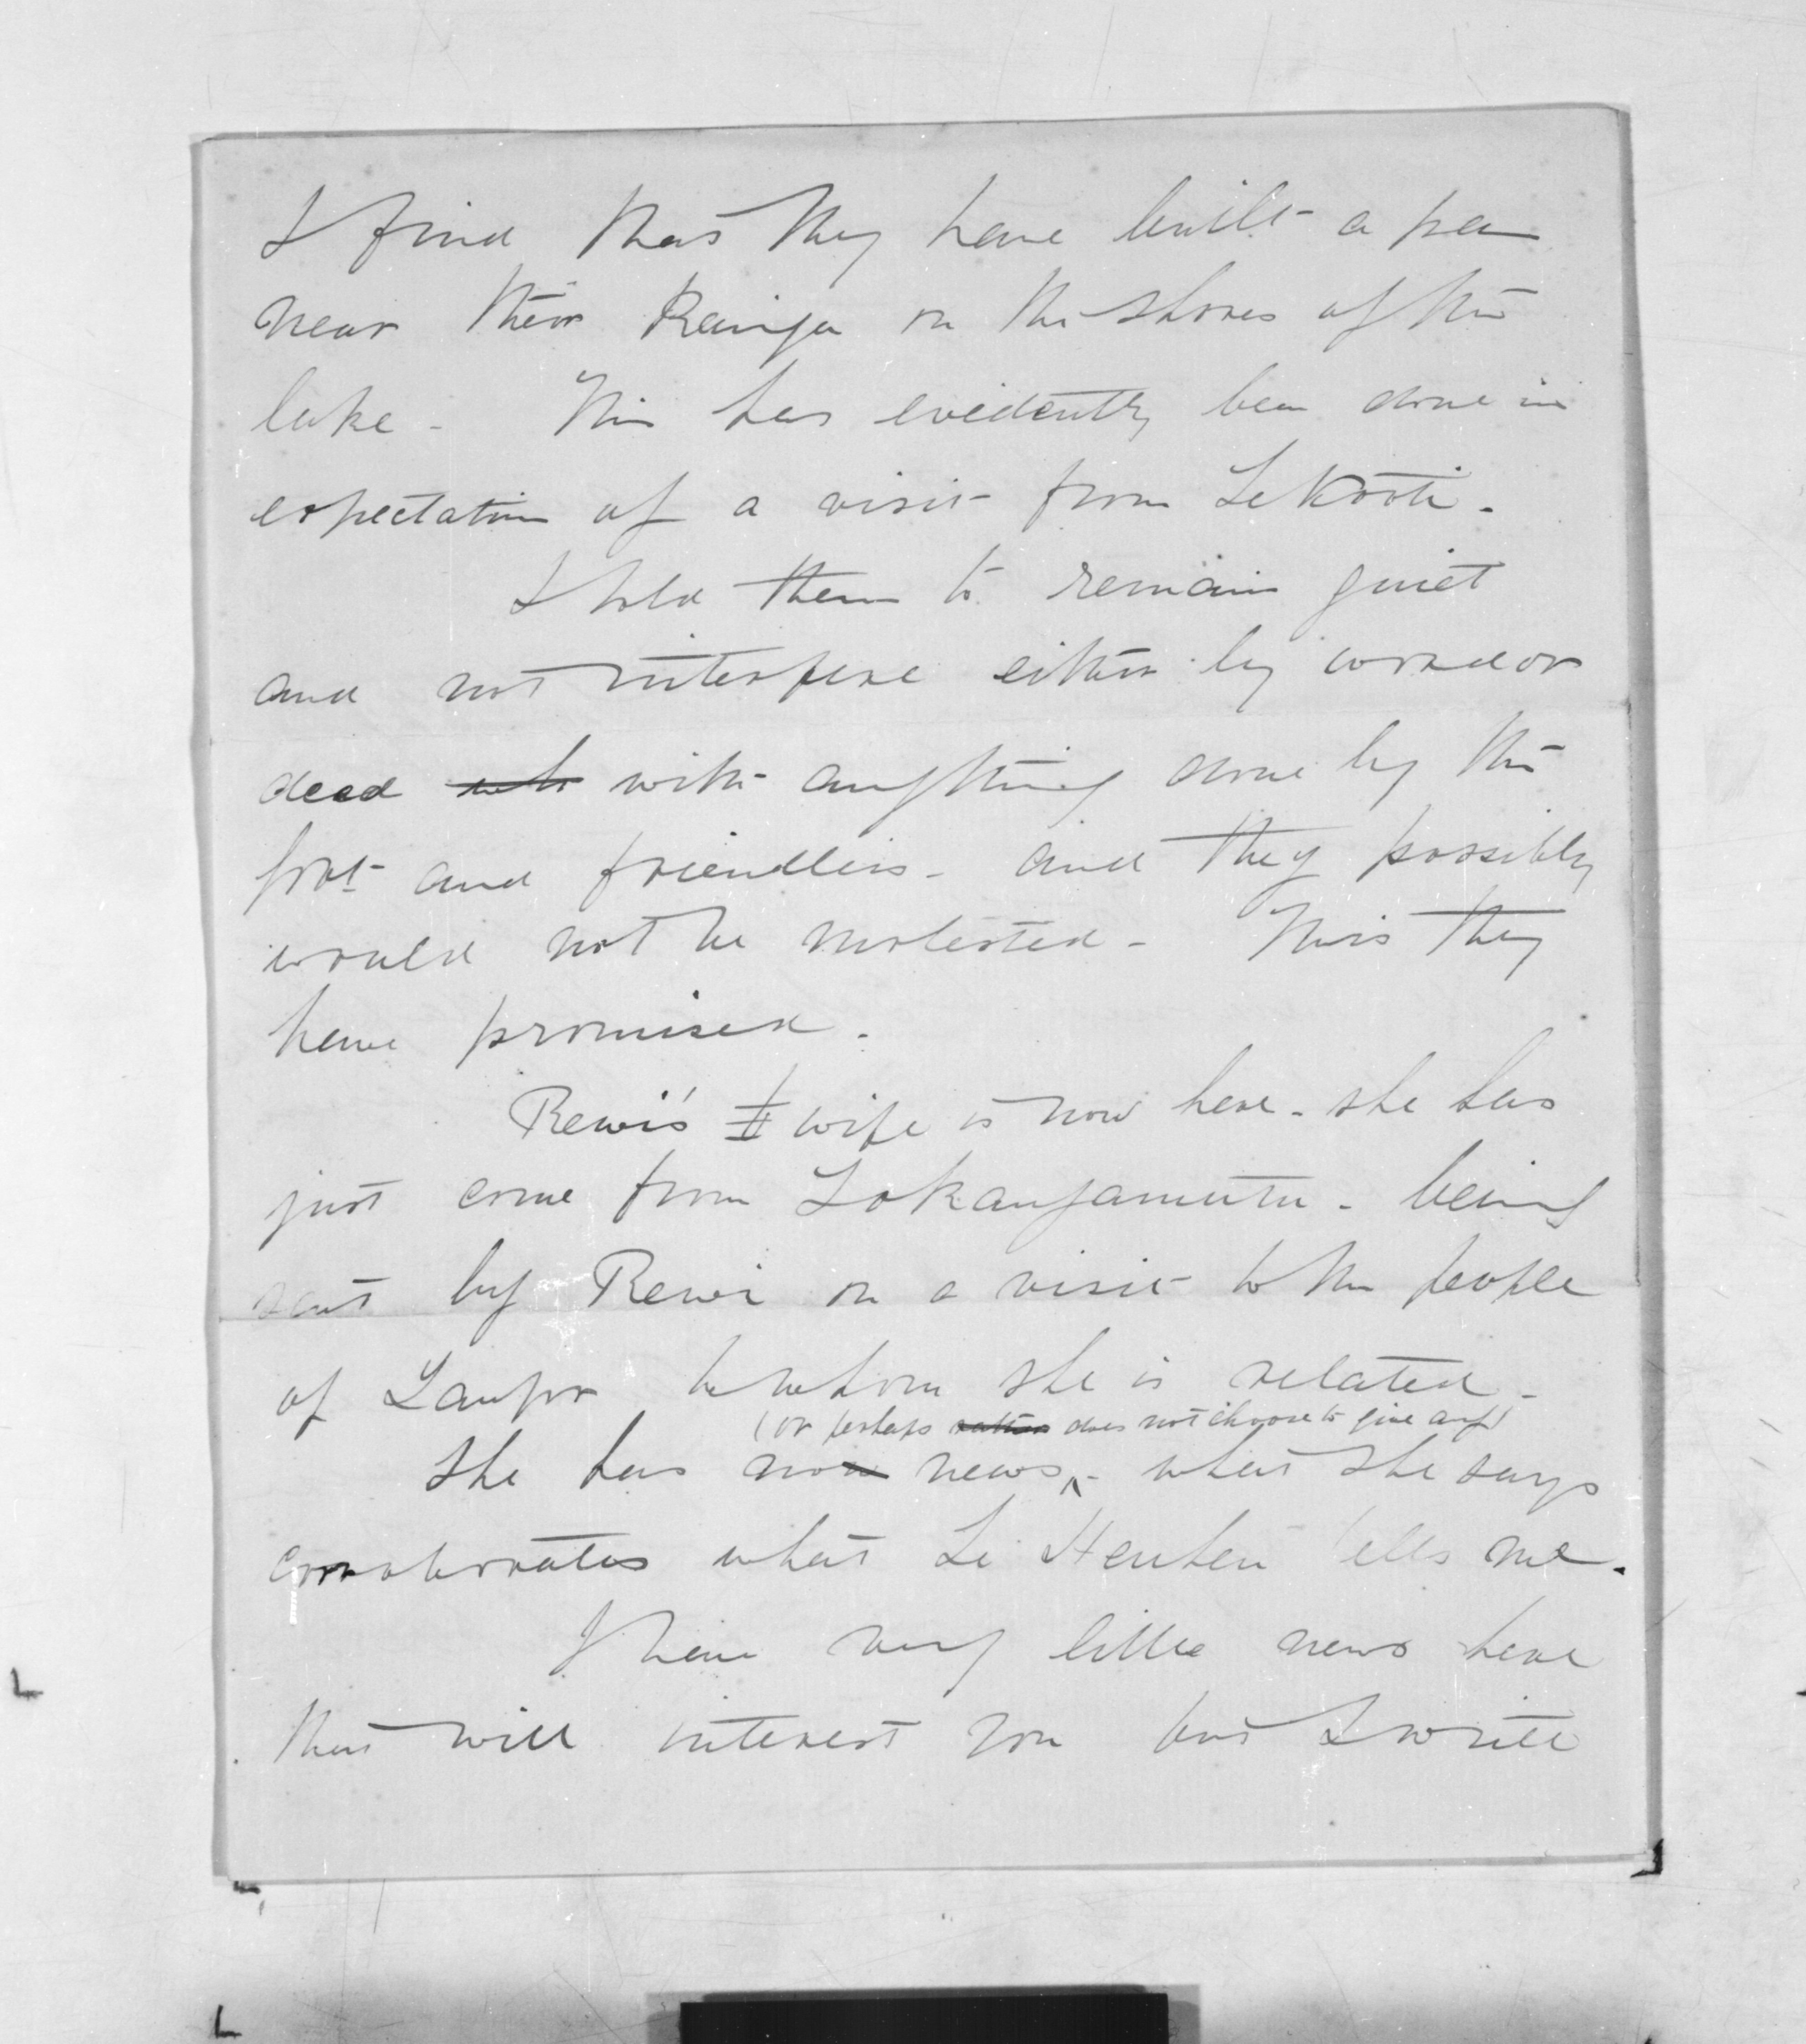 I find that they have built a pa
near their Kainga on the shores of the
lake - This has evidently been done in
expectation of a visit from Te Kooti -
I told them to remain quiet
and not interfere either by word or
deed with anything done by the
Govt and friendlies - and they possibly
would not be molested - This they
have promised -
Rewi's II wife is now here - she has
just come from Tokangamutu - being
sent by Rewi on a visit to the people
of Taupo to whom she is related -
(or perhaps does not choose to give any)
She has no news - what she says
corroborates what Te Heuheu tells me.
I have very little news here
that will interest you but I write